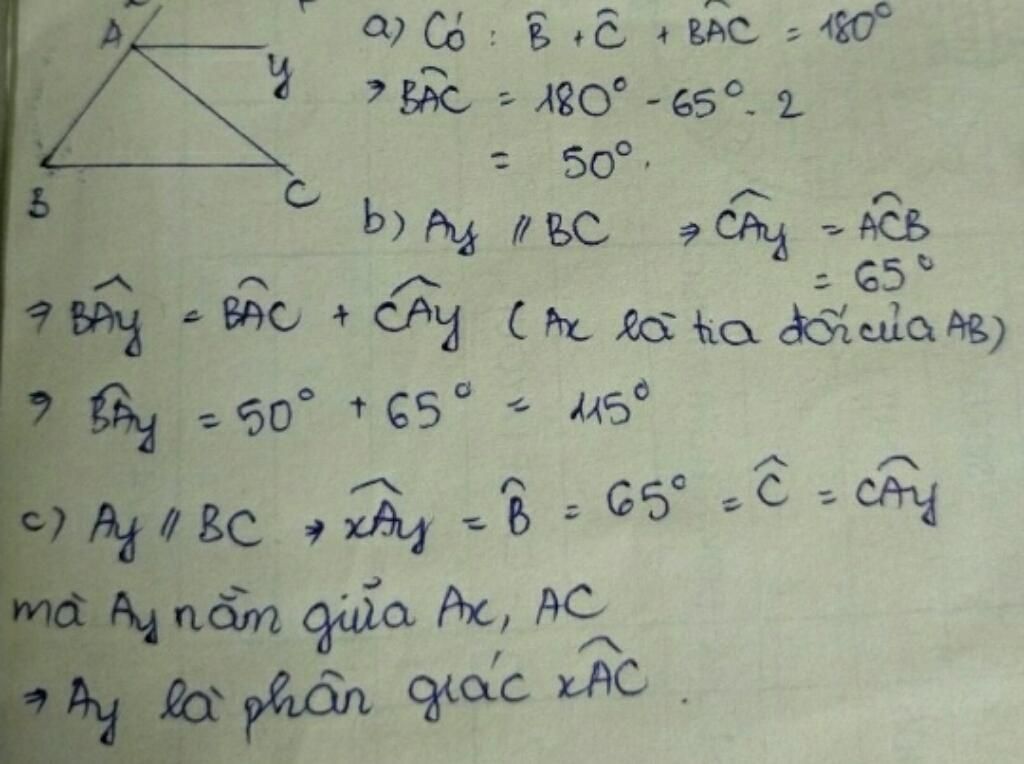 A
y
B
C
a) Có : B̂ + Ĉ + BÂC = 180°
⇒ BÂC = 180° - 65° . 2
= 50° .
b) Ay // BC ⇒ CÂy = AĈB
= 65°
⇒ BÂy = BÂC + CÂy ( Ax là tia đối của AB)
⇒ BÂy = 50° + 65° = 115°
c) Ay // BC ⇒ xÂy = B̂ = 65° = Ĉ = CÂy
mà Ay nằm giữa Ax, AC
⇒ Ay là phân giác xÂC .